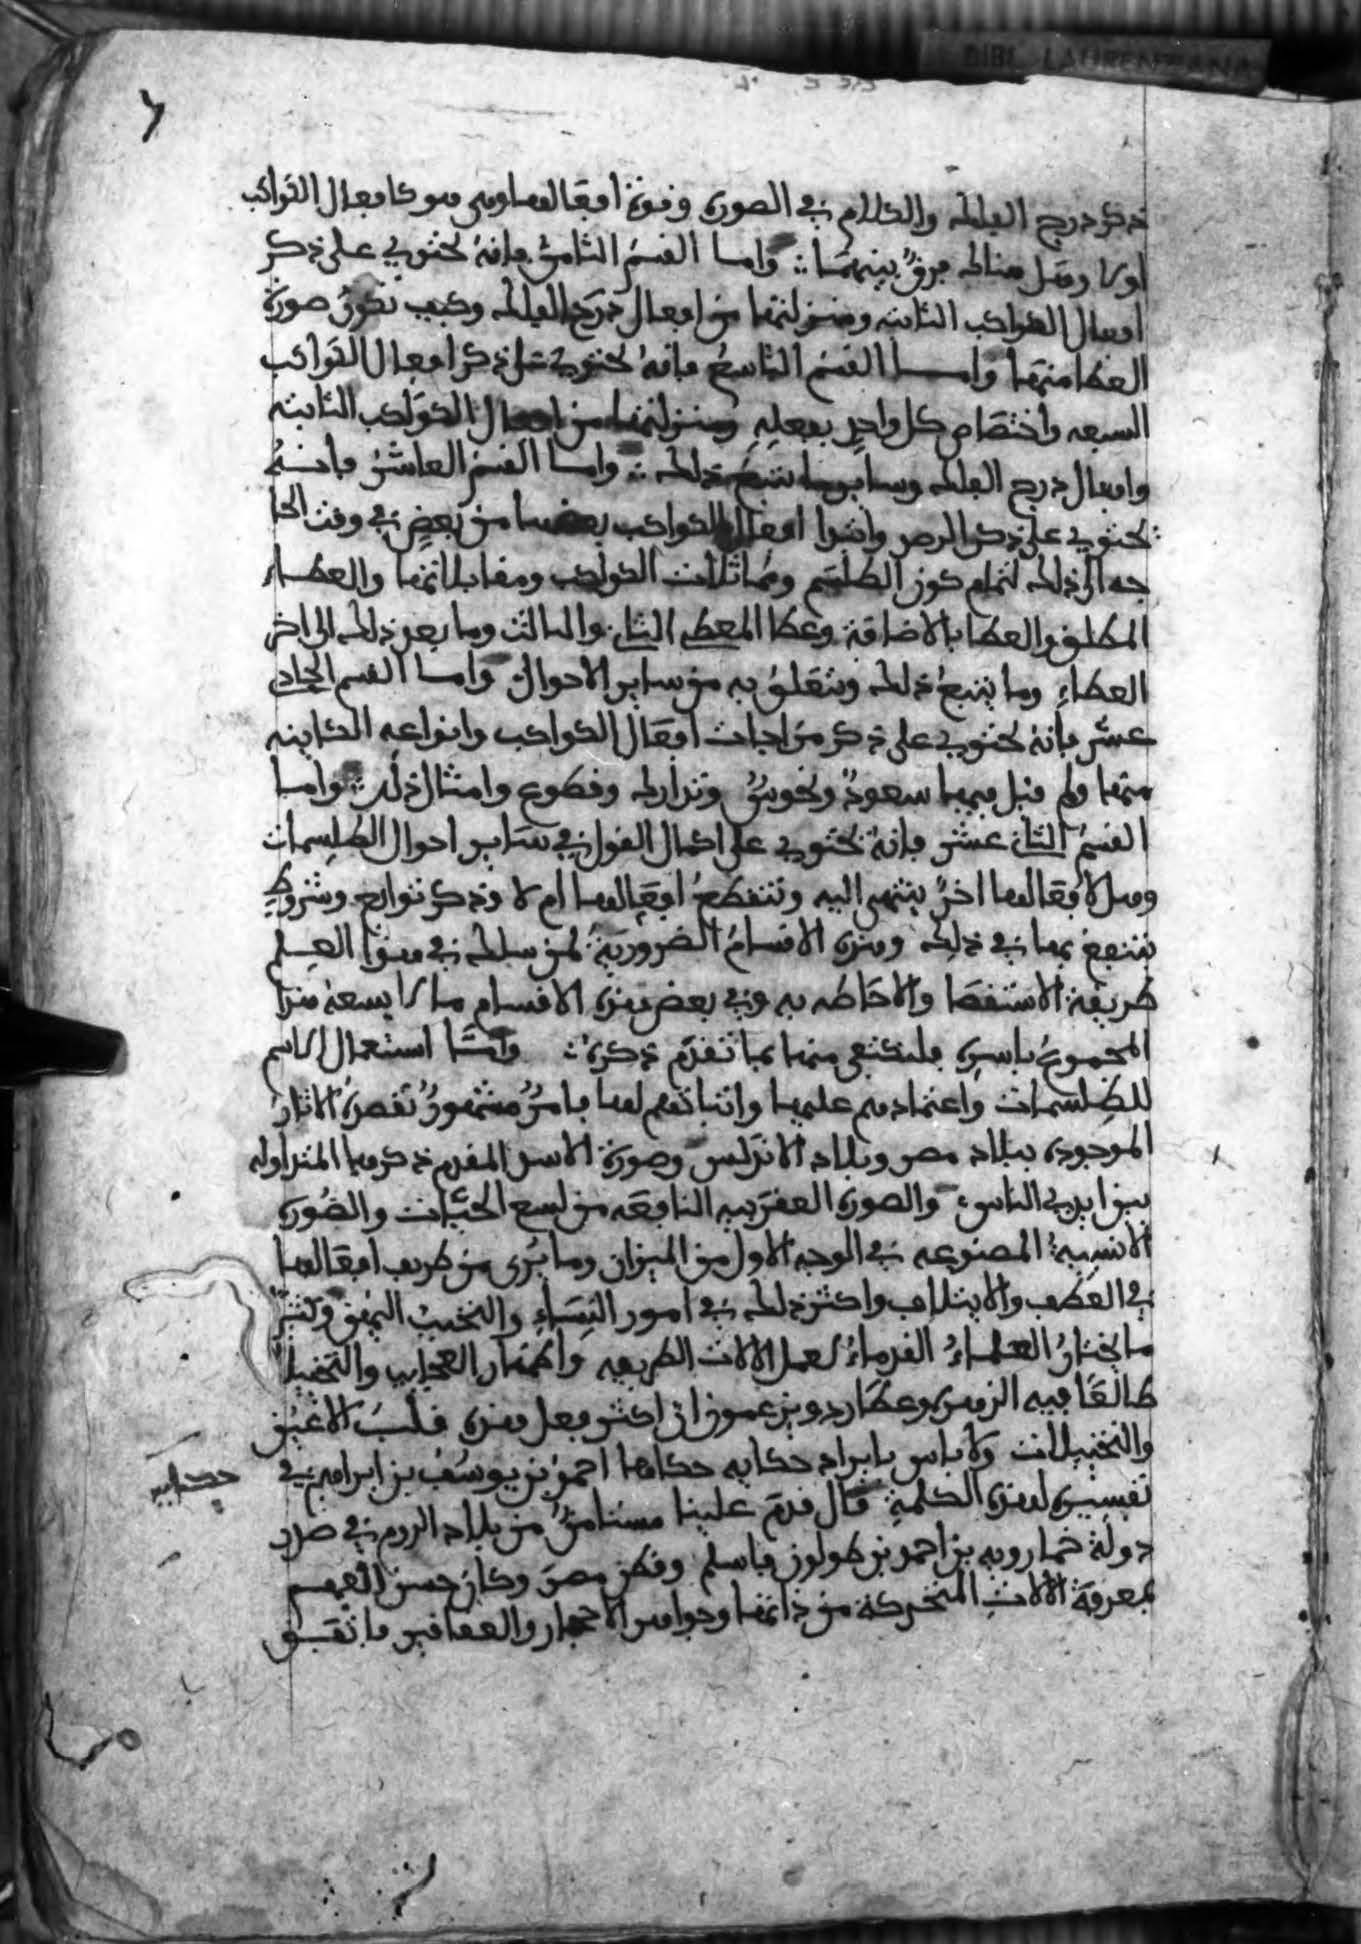 BIBL. LAURENZIANA
ذكر درج الفلك والكلام في الصورة وقوة افعالها وهي هو كافعال الكواكب
او لا وهل هنالك فرق بينهما ۞ واما القسم الثامن فإنه يحتوي على ذكر
افعال الكواكب الثابته ومنزلتها من افعال درج الفلك وكيف تكون صورة
العطا منها واما القسم التاسع فانه يحتوي على ذكر افعال الكواكب
السبعه واختصاص كل واحد بفعله ومنزلتها من افعال الكواكب الثابته
وافعال درج الفلك وساير ما يتبع ذلك ۞ واما القسم العاشر فانه
يحتوي على ذكر الرصد واشيا افعال الكواكب بعضها من بعض في وقت الحا
جه الى ذلك لتمام كون الطلسم ومماثلات الكواكب ومقابلاتها والعطاء
المطلق والعطا بالاضافة وعطا المعطي الثاني والثالث وما بعد ذلك الى اخر
العطاء وما يتبع ذلك ويتعلق به من ساير الاحوال واما القسم الحادي
عشر فانه يحتوي على ذكر مزاجات افعال الكواكب وانواعه الكاينه
منها ولم قيل فيها سعود ونحوس وتدارك وقطوع وامثال ذلك ۞ واما
القسم الثاني عشر فإنه يحتوي على اكمال القول في ساير احوال الطلسمات
وهل لافعالها اخر ينتهي اليه وتنقطع افعالها ام لا وذكر توابع وشروط
ينتفع بها في ذلك وهذه الاقسام الضرورية لمن سلك في هذا العلم
طريقة الاستقصا والاحاطه به وفي بعض هذه الاقسام ما لا يسعه هذا
المجموع باسره فلنكتفي منها بما تقدم ذكره ۞ واما استعمال الامم
للطلسمات واعتمادهم عليها واثباتهم لها فامر مشهور تعضده الاثار
الموجوده ببلاد مصر وبلاد الاندلس وصورة الاسد المقدم ذكرها المتداوله
بين ايدي الناس والصورة العقربيه النافعه من لسع الحيات والصورة
الانسيه المصنوعه في الوجه الاول من الميزان وما يرى من طريف افعالها
في العطف والايتلاف واكثر ذلك في امور النساء والتخييل
ما يختار العلماء القدماء لعمل الالات الطريفه واظهار العجايب والتخييل
طالعا فيه الزهرة وعطارد ويزعمون ان اكثر فعل هذه قلب الاعين
والتخييلات ولا باس بايراد حكايه حكاها احمد بن يوسف بن ابراهيم في
تفسيره لهذه الكلمة قال قدم علينا مستامن من بلاد الروم في صدر
دولة خمارويه بن احمد بن طولون فاسلم وقطن مصر وكان حسن الفهم
بمعرفة الالات المتحركة من ذاتها وخواص الاحجار والعقاقير فاتفق
حكايه